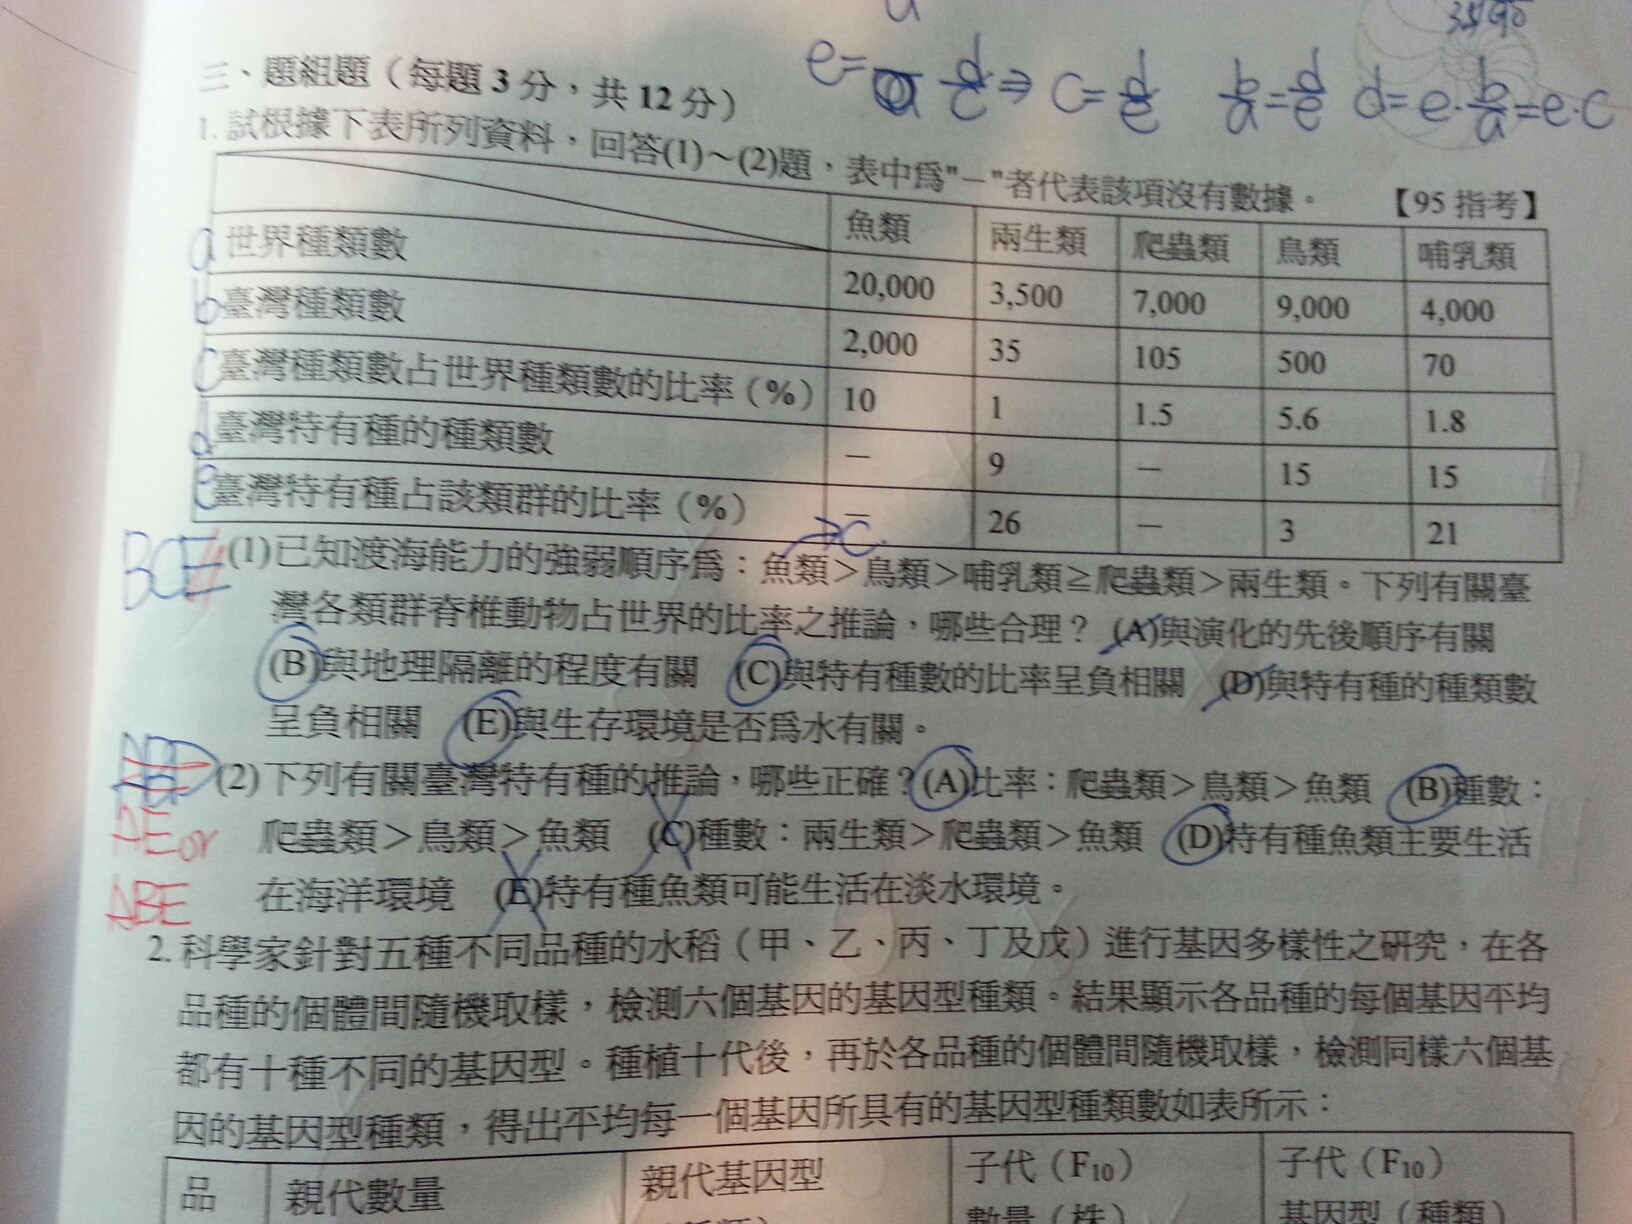 e= d/c ⇒ c= d/e b/a = d/e d=e·b/a=e·c
三、題組題（每題 3 分，共 12 分）
1. 試根據下表所列資料，回答(1)～(2)題，表中爲"－"者代表該項沒有數據。 【95 指考】
魚類 兩生類 爬蟲類 鳥類 哺乳類
a 世界種類數 20,000 3,500 7,000 9,000 4,000
b 臺灣種類數 2,000 35 105 500 70
c 臺灣種類數占世界種類數的比率（%） 10 1 1.5 5.6 1.8
d 臺灣特有種的種類數 － 9 － 15 15
e 臺灣特有種占該類群的比率（%） － 26 － 3 21
→C.
BCE (1)已知渡海能力的強弱順序爲：魚類＞鳥類＞哺乳類≧爬蟲類＞兩生類。下列有關臺
灣各類群脊椎動物占世界的比率之推論，哪些合理？ (A)與演化的先後順序有關
(B)與地理隔離的程度有關 (C)與特有種數的比率呈負相關 (D)與特有種的種類數
呈負相關 (E)與生存環境是否爲水有關。
(2)下列有關臺灣特有種的推論，哪些正確？(A)比率：爬蟲類＞鳥類＞魚類 (B)種數：
AE or 爬蟲類＞鳥類＞魚類 (C)種數：兩生類＞爬蟲類＞魚類 (D)特有種魚類主要生活
ABE 在海洋環境 (E)特有種魚類可能生活在淡水環境。
2. 科學家針對五種不同品種的水稻（甲、乙、丙、丁及戊）進行基因多樣性之研究，在各
品種的個體間隨機取樣，檢測六個基因的基因型種類。結果顯示各品種的每個基因平均
都有十種不同的基因型。種植十代後，再於各品種的個體間隨機取樣，檢測同樣六個基
因的基因型種類，得出平均每一個基因所具有的基因型種類數如表所示：
品 親代數量 親代基因型 子代（F₁₀） 子代（F₁₀）
數量（株） 基因型（種類）